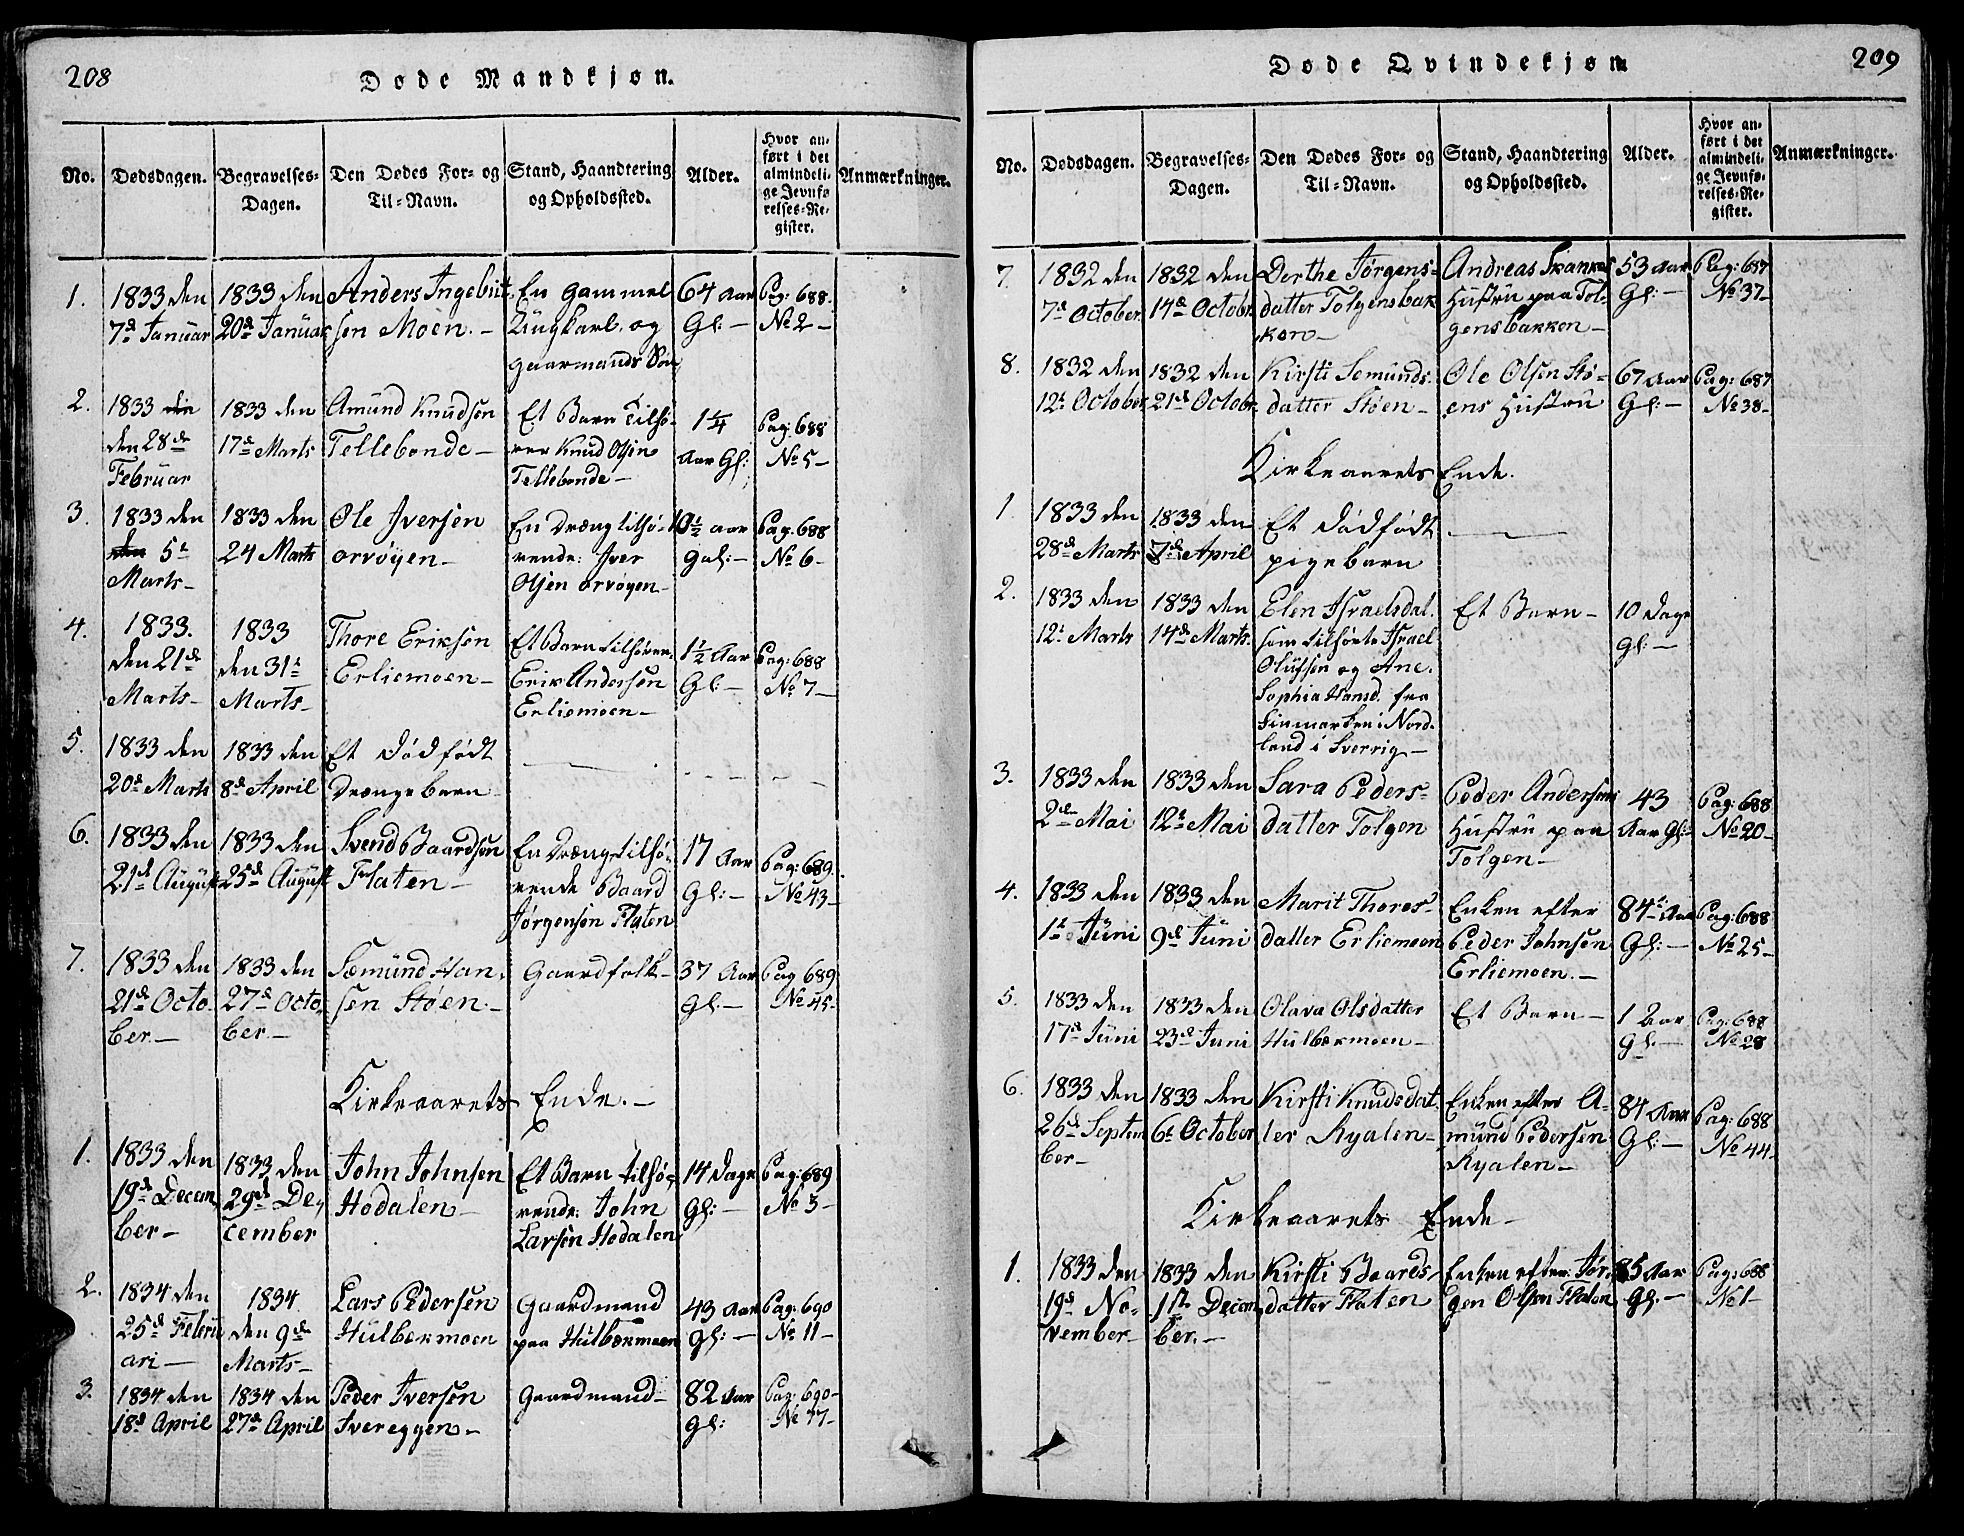 208
Døde Mandkjøn.
No.
Dødsdagen.
Begravelses-
Dagen.
Den Dødes For- og
Til-Navn.
Stand, Haandtering
og Opholdssted.
Alder.
Hvor an-
ført i det
almindeli-
ge Jevnfø
relses-Re-
gister.
Anmærkninger.
1.
1833 den
7de Januar
1833 den
20de Januar
Anders Ingebrit
sen Moen. -
En gammel
Ungkarl, og
gaarmands Søn
64 Aar
Gl: -
Pag: 688.
No 2 -
2.
1833
den 28de
Februar
1833 den
17de Marts
Amund Knudsen
Tellebonde -
Et Barn tilhø-
rer Knud Olsen
Tellebonde -
1 1/4
Aar Gl:
Pag: 688
No 5 -
3.
1833 den
5te
Marts -
1833 den
24 Marts
Ole Iversen
orvøyen -
En Dræng tilhø-
rende: Iver
Olsen orvøyen -
10½ aar
gal: -
Pag. 688
No 6 -
4.
1833.
den 21de
Marts -
1833
den 31te
Marts -
Thore Eriksen
Erliemoen -
Et Barn tilhører
Erik Andersen
Erliemoen -
1½ Aar
Gl: -
Pag: 688
No 7 -
5.
1833 den
20de Marts
1833 den
8de April
Et dødfødt
Drænge barn
6.
1833 den
21de August
1833 den
25de August
Svend Baardsen
Flaten -
En Dræng tilhø-
rende Baard
Jørgensen Flaten
17 Aar
Gl: -
Pag: 689.
No 43 -
7.
1833 den
21de Octo-
ber. -
1833 den
27de Octo-
ber. -
Sæmund Han-
sen Støen. -
Gaardfolk -
37 Aar
gl: -
Pag 689
No 45 -
Kirkeaarets Ende. -
1.
1833 den
19de Decem
ber -
1833 den
29de De-
cember
John Johnsen
Hodalen -
Et Barn tilhø-
rende: John
Larsen Hodalen
14 Dage
Gl: -
Pag: 689
No 3 -
2.
1834 den
25de Febru
ari -
1834
den 9de
Marts -
Lars Pedersen
Hulbækmoen
Gaardmand
paa Hulbækmoen
43 Aar
gl: -
Pag: 690
No 11 -
3.
1834 den
18de April
1834 den
27de April
Peder Iversen
Ivereggen -
Gaardmand -
82 Aar
gl:
Pag: 690 -
209
Døde Qvindekjøn
No.
Dødsdagen.
Begravelses-
Dagen.
Den Dødes For- og
Til-Navn.
Stand, Haandtering
og Opholdssted.
Alder.
Hvor an-
ført i det
almindeli-
ge Jevnfø-
relses-Re-
gister.
Anmærkninger.
7.
1832 den
7de October
1832 den
14de October
Dorthe Jørgens-
datter Tolgensbak
ken -
Andreas Skankes
Hustru paa Tol-
gensbakken -
53 Aar
Gl: -
Pag: 687
No 37 -
8.
1832 den
12te October
1832 den
21de Octobr.
Kirsti Semunds
datter Støen -
Ole Olsen Stø-
ens Hustru
67 Aar
Gl: -
Pag: 687
No 38 -
Kirkeaarets Ende.
1.
1833 den
28de Marts
1833 den
7de April
Et dødfødt
pigebarn
2.
1833 den
12te Marts
1833 den
14de Marts.
Elen Israelsdat.
som tilhørte Israel
Olufsen og Ane
Sophia Hansd. fra
Finmarken i Nord-
land i Sverrig -
Et Barn -
10 Dage
gl: -
3.
1833 den
2den Mai
1833 den
12te Mai
Sara Peders-
datter Tolgen
Peder Andersens
Hustru paa
Tolgen -
43
Aar Gl:
Pag: 688
No 20 -
4.
1833 den
1te Juni
1833 den
9de Juni
Marit Thores-
datter Erliemoen
Enken efter
Peder Johnsen
Erliemoen. -
84 Aar
Gl: -
Pag: 688
No 25 -
5.
1833 den
17de Juni
1833 den
23de Juni
Olava Olsdatter
Hulbækmoen -
Et Barn -
1 Aar
Gl. -
Pag: 688
No 28
6.
1833 den
26de Septem
ber -
1833 den
6te October
Kirsti Knudsdat
ter Ryalen -
Enken efter A-
mund Pedersen
Ryalen -
84 Aar
Gl: -
Pag: 688
No 44 -
Kirkeaarets Ende -
1.
1833 den
19de No-
vember -
1833 den
1ste Decem
ber. -
Kirsti Baards-
datter Flaten
Enken efter: Jør-
gen Olsen Flaten
85 Aar
Gl. -
Pag: 688
No 1 -